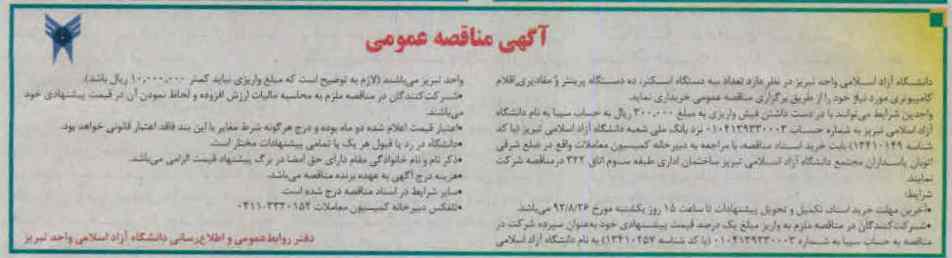 آگهی مناقصه عمومی
دانشگاه آزاد اسلامی واحد تبریز در نظر دارد تعداد سه دستگاه اسکنر، ده دستگاه پرینتر و مقادیری اقلام
کامپیوتری مورد نیاز خود را از طریق برگزاری مناقصه عمومی خریداری نماید.
واجدین شرایط می‌توانند با در دست داشتن فیش واریزی به مبلغ ۳۰۰,۰۰۰ ریال به حساب سیبا به نام دانشگاه
آزاد اسلامی تبریز به شماره حساب ۰۱۰۴۱۳۹۳۳۰۰۰۳ نزد بانک ملی شعبه دانشگاه آزاد اسلامی تبریز (با کد
شناسه ۱۳۴۱۰۱۴۹) بابت خرید اسناد مناقصه، با مراجعه به دبیرخانه کمیسیون معاملات واقع در ضلع شرقی
اتوبان پاسداران مجتمع دانشگاه آزاد اسلامی تبریز ساختمان اداری طبقه سوم اتاق ۳۲۲ در مناقصه شرکت
نمایند.
شرایط:
•آخرین مهلت خرید اسناد، تکمیل و تحویل پیشنهادات تا ساعت ۱۵ روز یکشنبه مورخ ۹۲/۸/۲۶ می‌باشد.
•شرکت‌کنندگان در مناقصه ملزم به واریز مبلغ یک درصد قیمت پیشنهادی خود به‌عنوان سپرده شرکت در
مناقصه به حساب سیبا به شماره ۰۱۰۴۱۳۹۳۳۰۰۰۳ (با کد شناسه ۱۳۴۱۰۲۵۷) به نام دانشگاه آزاد اسلامی
واحد تبریز می‌باشند (لازم به توضیح است که مبلغ واریزی نباید کمتر ۱۰,۰۰۰,۰۰۰ ریال باشد).
•شرکت‌کنندگان در مناقصه ملزم به محاسبه مالیات ارزش افزوده و لحاظ نمودن آن در قیمت پیشنهادی خود
می‌باشند.
•اعتبار قیمت اعلام شده دو ماه بوده و درج هرگونه شرط مغایر با این بند فاقد اعتبار قانونی خواهد بود.
•دانشگاه در رد یا قبول هر یک یا تمامی پیشنهادات مختار است.
•ذکر نام و نام خانوادگی مقام دارای حق امضا در برگ پیشنهاد قیمت الزامی می‌باشد.
•هزینه درج آگهی به عهده برنده مناقصه می‌باشد.
•سایر شرایط در اسناد مناقصه درج شده است.
•تلفکس دبیرخانه کمیسیون معاملات ۳۳۲۰۱۵۴-۰۴۱۱
دفتر روابط‌عمومی و اطلاع‌رسانی دانشگاه آزاد اسلامی واحد تبریز